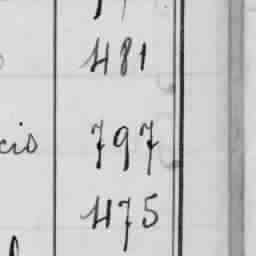 481
cis 797
475